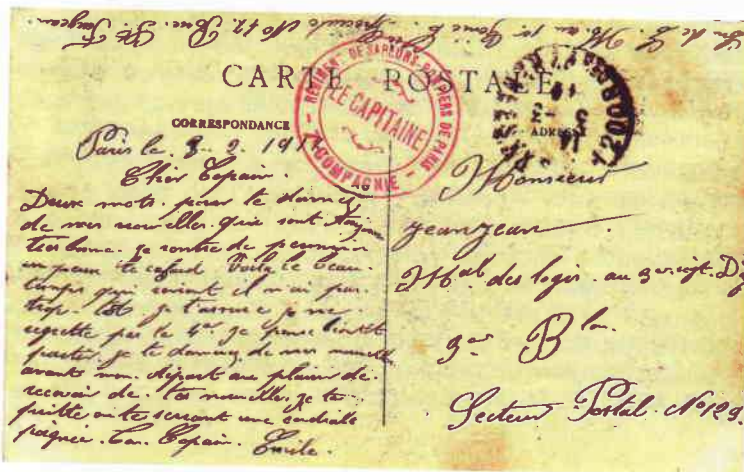 CARTE POSTALE
REGIMENT DE SAPEURS-POMPIERS DE PARIS
LE CAPITAINE
COMPAGNIE
CORRESPONDANCE
ADRESSE
Paris le 3. 2. 191
Cher Copain.
Deux mots pour te donner
de mes nouvelles qui sont toujours
tres bonne. je rentre de permission
un peux le cafard Voila le beau
temps qui revient il n'ai pas
trop tôt je t'assure je ne
regrette pas le 4e je pense bientôt
partir. je te donnerez de mes nouvelles
avants mon départ au plaisir de
recevoir de tes nouvelles je te
quitte en te serrant une cordiale
poignée. Ton Copain. Emile.
Monsieur
Jeanjean
Mal des logis au 3e regt. D
3e Bon
Secteur Postal No 129.